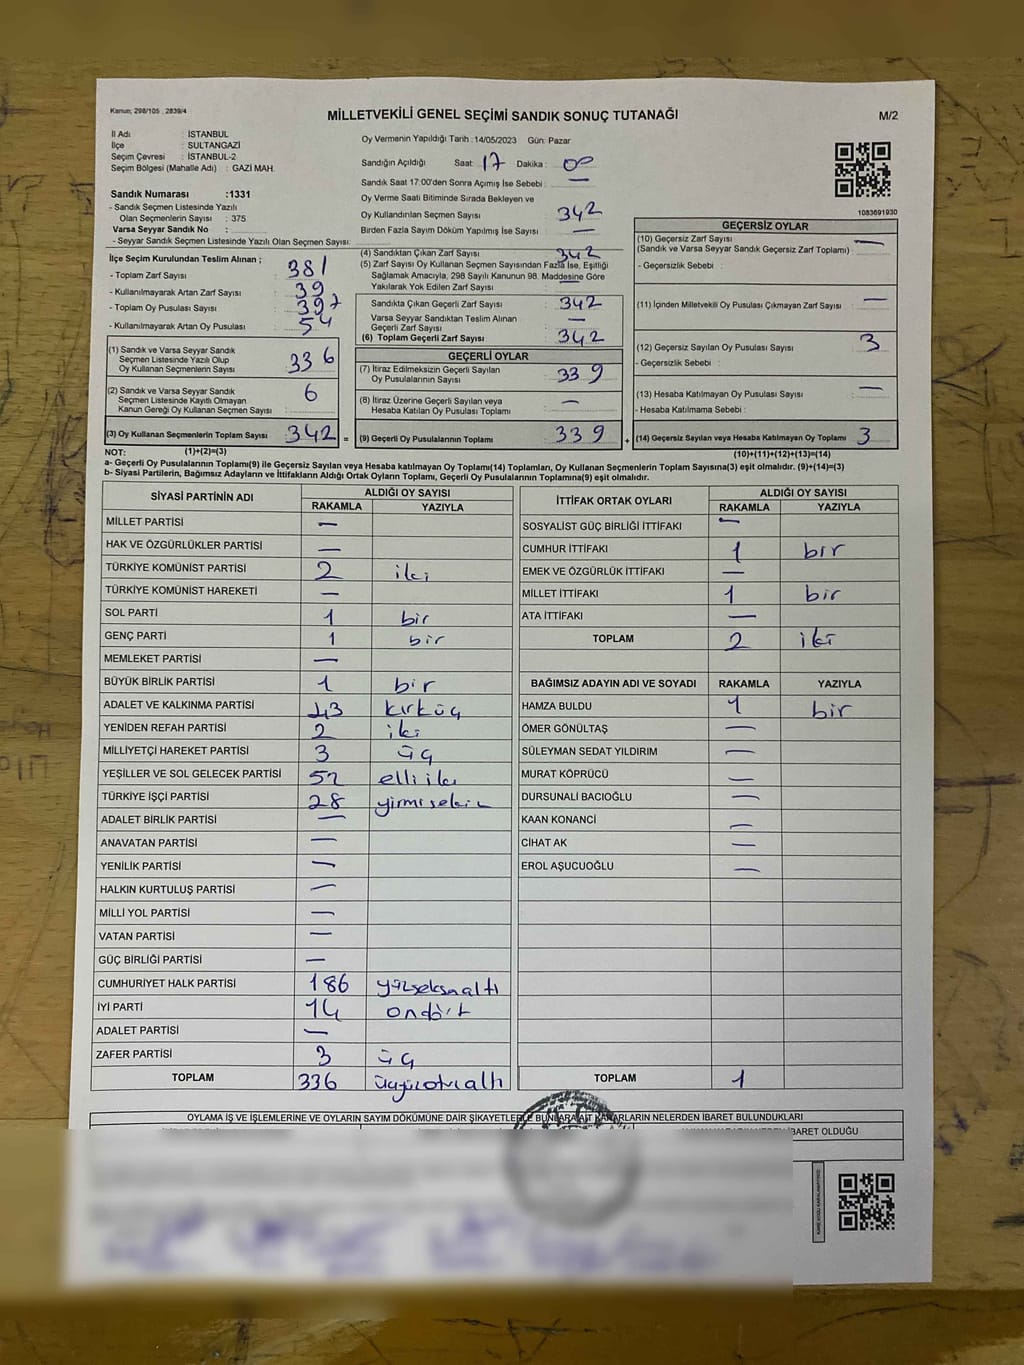 Kanun; 298/105 , 2839/4
MİLLETVEKİLİ GENEL SEÇİMİ SANDIK SONUÇ TUTANAĞI
M/2
İl Adı : İSTANBUL
İlçe : SULTANGAZİ
Seçim Çevresi : İSTANBUL-2
Seçim Bölgesi (Mahalle Adı) : GAZİ MAH.
Sandık Numarası :1331
- Sandık Seçmen Listesinde Yazılı
Olan Seçmenlerin Sayısı : 375
Varsa Seyyar Sandık No :
- Seyyar Sandık Seçmen Listesinde Yazılı Olan Seçmen Sayısı:
Oy Vermenin Yapıldığı Tarih :14/05/2023 Gün: Pazar
Sandığın Açıldığı Saat: 17 Dakika : 00
Sandık Saat 17:00'den Sonra Açımış İse Sebebi : —
Oy Verme Saati Bitiminde Sırada Bekleyen ve
Oy Kullandırılan Seçmen Sayısı 342
Birden Fazla Sayım Döküm Yapılmış İse Sayısı : —
1083691930
İlçe Seçim Kurulundan Teslim Alınan ;
- Toplam Zarf Sayısı 381
- Kullanılmayarak Artan Zarf Sayısı 39
- Toplam Oy Pusulası Sayısı 397
- Kullanılmayarak Artan Oy Pusulası 54
(1) Sandık ve Varsa Seyyar Sandık
Seçmen Listesinde Yazılı Olup
Oy Kullanan Seçmenlerin Sayısı 336
(2) Sandık ve Varsa Seyyar Sandık
Seçmen Listesinde Kayıtlı Olmayan
Kanun Gereği Oy Kullanan Seçmen Sayısı 6
(3) Oy Kullanan Seçmenlerin Toplam Sayısı 342 =
(4) Sandıktan Çıkan Zarf Sayısı 342
(5) Zarf Sayısı Oy Kullanan Seçmen Sayısından Fazla İse, Eşitliği
Sağlamak Amacıyla, 298 Sayılı Kanunun 98. Maddesine Göre
Yakılarak Yok Edilen Zarf Sayısı —
Sandıkta Çıkan Geçerli Zarf Sayısı 342
Varsa Seyyar Sandıktan Teslim Alınan
Geçerli Zarf Sayısı —
(6) Toplam Geçerli Zarf Sayısı 342
GEÇERLİ OYLAR
(7) İtiraz Edilmeksizin Geçerli Sayılan
Oy Pusulalarının Sayısı 339
(8) İtiraz Üzerine Geçerli Sayılan veya
Hesaba Katılan Oy Pusulası Toplamı —
(9) Geçerli Oy Pusulalarının Toplamı 339 +
GEÇERSİZ OYLAR
(10) Geçersiz Zarf Sayısı —
(Sandık ve Varsa Seyyar Sandık Geçersiz Zarf Toplamı)
- Geçersizlik Sebebi :
(11) İçinden Milletvekili Oy Pusulası Çıkmayan Zarf Sayısı —
(12) Geçersiz Sayılan Oy Pusulası Sayısı 3
- Geçersizlik Sebebi :
(13) Hesaba Katılmayan Oy Pusulası Sayısı —
- Hesaba Katılmama Sebebi :
(14) Geçersiz Sayılan veya Hesaba Katılmayan Oy Toplamı 3
NOT: (1)+(2)=(3)
(10)+(11)+(12)+(13)=(14)
a- Geçerli Oy Pusulalarının Toplamı(9) ile Geçersiz Sayılan veya Hesaba katılmayan Oy Toplamı(14) Toplamları, Oy Kullanan Seçmenlerin Toplam Sayısına(3) eşit olmalıdır. (9)+(14)=(3)
b- Siyasi Partilerin, Bağımsız Adayların ve İttifakların Aldığı Ortak Oyların Toplamı, Geçerli Oy Pusulalarının Toplamına(9) eşit olmalıdır.
SİYASİ PARTİNİN ADI ALDIĞI OY SAYISI
RAKAMLA YAZIYLA
MİLLET PARTİSİ —
HAK VE ÖZGÜRLÜKLER PARTİSİ —
TÜRKİYE KOMÜNİST PARTİSİ 2 iki
TÜRKİYE KOMÜNİST HAREKETİ —
SOL PARTİ 1 bir
GENÇ PARTİ 1 bir
MEMLEKET PARTİSİ —
BÜYÜK BİRLİK PARTİSİ 1 bir
ADALET VE KALKINMA PARTİSİ 43 kırküç
YENİDEN REFAH PARTİSİ 2 iki
MİLLİYETÇİ HAREKET PARTİSİ 3 üç
YEŞİLLER VE SOL GELECEK PARTİSİ 52 elliiki
TÜRKİYE İŞÇİ PARTİSİ 28 yirmisekiz
ADALET BİRLİK PARTİSİ —
ANAVATAN PARTİSİ —
YENİLİK PARTİSİ —
HALKIN KURTULUŞ PARTİSİ —
MİLLİ YOL PARTİSİ —
VATAN PARTİSİ —
GÜÇ BİRLİĞİ PARTİSİ —
CUMHURİYET HALK PARTİSİ 186 yüzseksenaltı
İYİ PARTİ 14 ondört
ADALET PARTİSİ —
ZAFER PARTİSİ 3 üç
TOPLAM 336 üçyüzotuzaltı
İTTİFAK ORTAK OYLARI ALDIĞI OY SAYISI
RAKAMLA YAZIYLA
SOSYALİST GÜÇ BİRLİĞİ İTTİFAKI —
CUMHUR İTTİFAKI 1 bir
EMEK VE ÖZGÜRLÜK İTTİFAKI —
MİLLET İTTİFAKI 1 bir
ATA İTTİFAKI —
TOPLAM 2 iki
BAĞIMSIZ ADAYIN ADI VE SOYADI RAKAMLA YAZIYLA
HAMZA BULDU 1 bir
ÖMER GÖNÜLTAŞ —
SÜLEYMAN SEDAT YILDIRIM —
MURAT KÖPRÜCÜ —
DURSUNALİ BACIOĞLU —
KAAN KONANCİ —
CİHAT AK —
EROL AŞUCUOĞLU —
TOPLAM 1
OYLAMA İŞ VE İŞLEMLERİNE VE OYLARIN SAYIM DÖKÜMÜNE DAİR ŞİKAYETLERLE BUNLARA AİT KARARLARIN NELERDEN İBARET BULUNDUKLARI
İBARET OLDUĞU